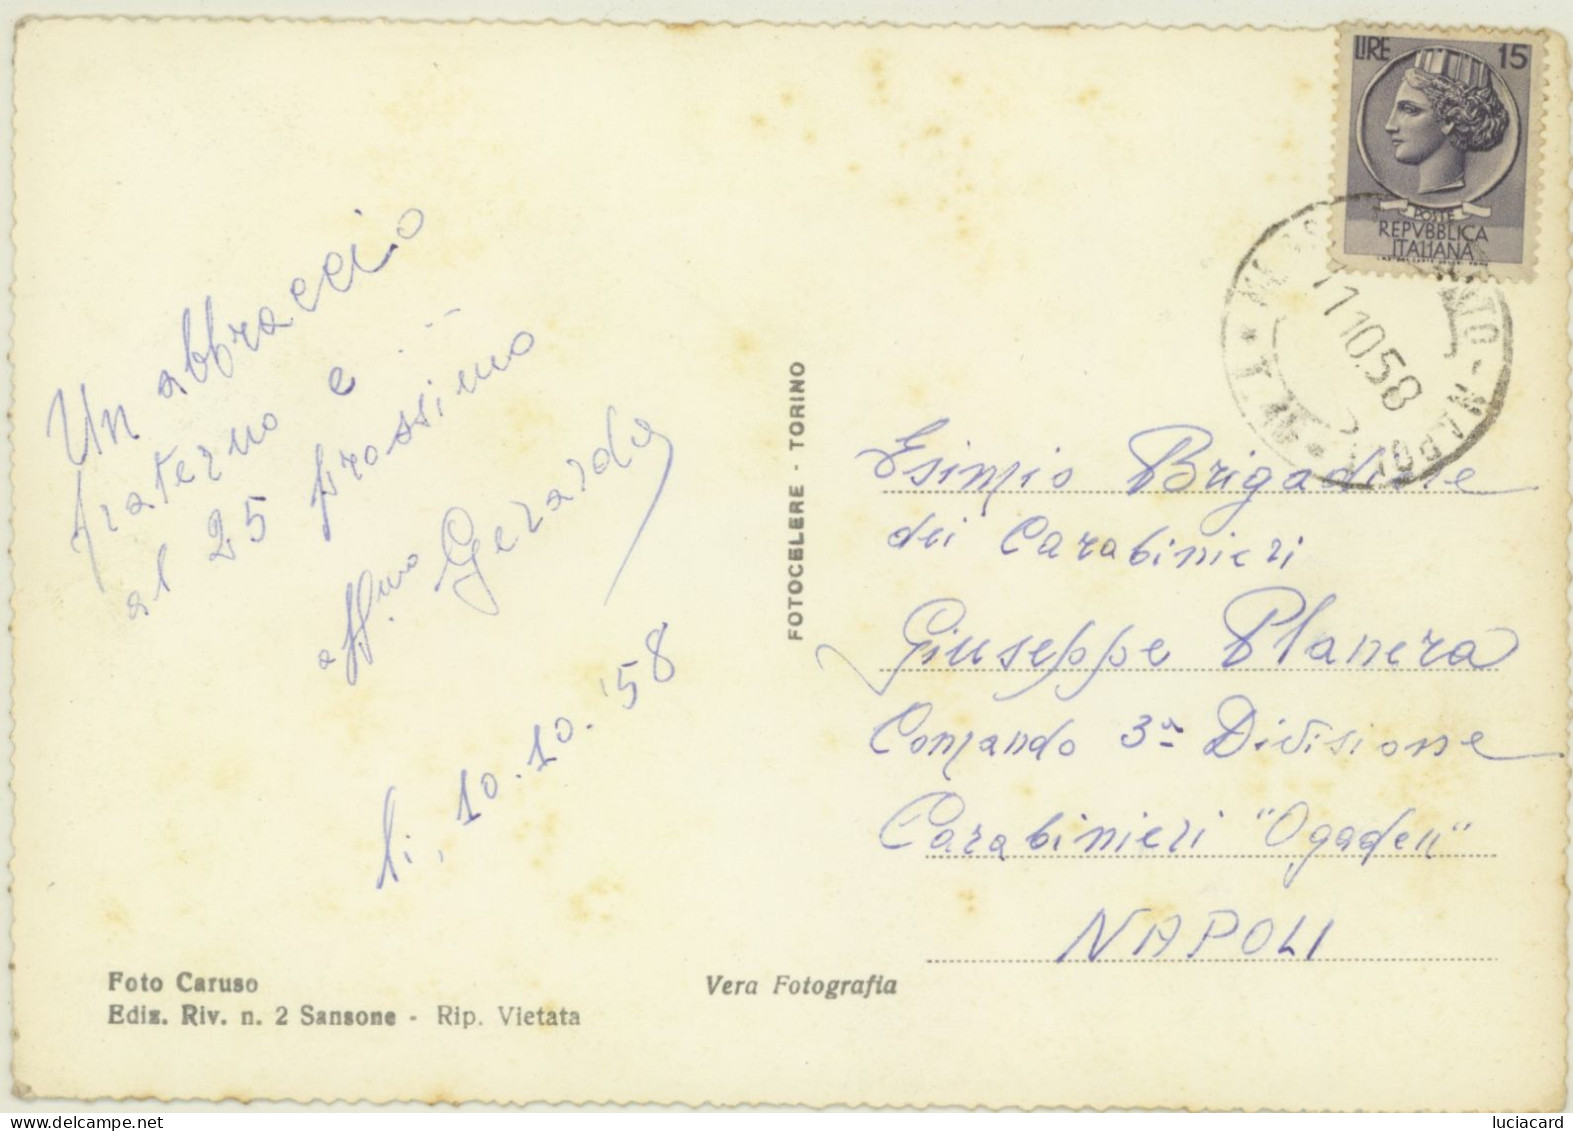 Un abbraccio
fraterno e
al 25 prossimo
aff.mo Gerardo
lì, 10.10.'58
Foto Caruso
Ediz. Riv. n. 2 Sansone - Rip. Vietata
Vera Fotografia
FOTOCELERE - TORINO
LIRE 15
POSTE
REPVBBLICA
ITALIANA
11.10.58
NAPOLI
Esimio Brigadiere
dei Carabinieri
Giuseppe Planera
Comando 3ª Divisione
Carabinieri "Ogaden"
NAPOLI
luciacard